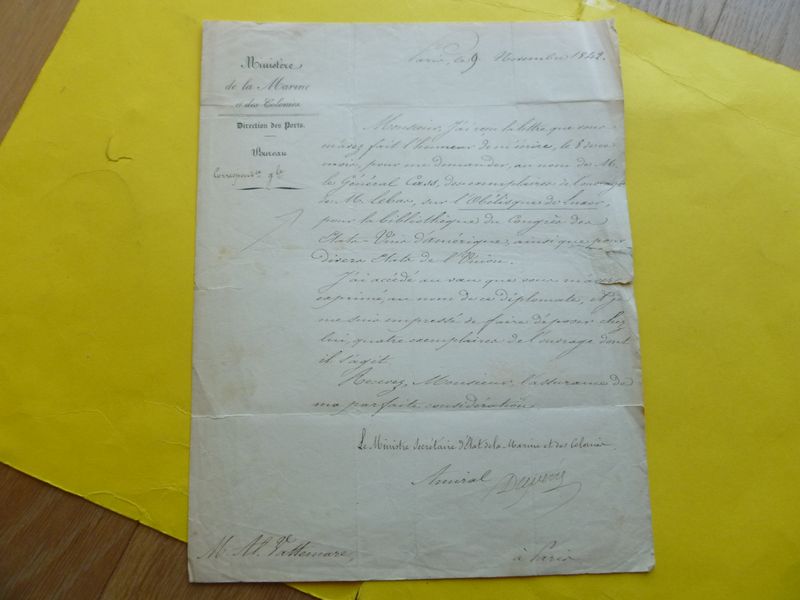 Ministère
de la Marine
et des Colonies.
Direction des Ports.
Bureau
Correspond.ce g.le
Paris, le 9 Novembre 1842.
Monsieur, J'ai reçu la lettre que vous
m'avez fait l'honneur de m'écrire, le 8 de ce
mois, pour me demander, au nom de M.
le Général Cass, des exemplaires de l'ouvrage
de M. Lebas, sur l'Obélisque de Luxor,
pour la bibliothèque du Congrès des
États-Unis d'Amérique, ainsi que pour
divers États de l'Union.
J'ai accédé au vœu que vous m'avez
exprimé, au nom de ce diplomate, et je
me suis empressé de faire déposer chez
lui, quatre exemplaires de l'ouvrage dont
il s'agit.
Recevez, Monsieur, l'assurance de
ma parfaite considération.
Le Ministre Secrétaire d'État de la Marine et des Colonies
Amiral Duperré
M. Al. Vattemare,
à Paris